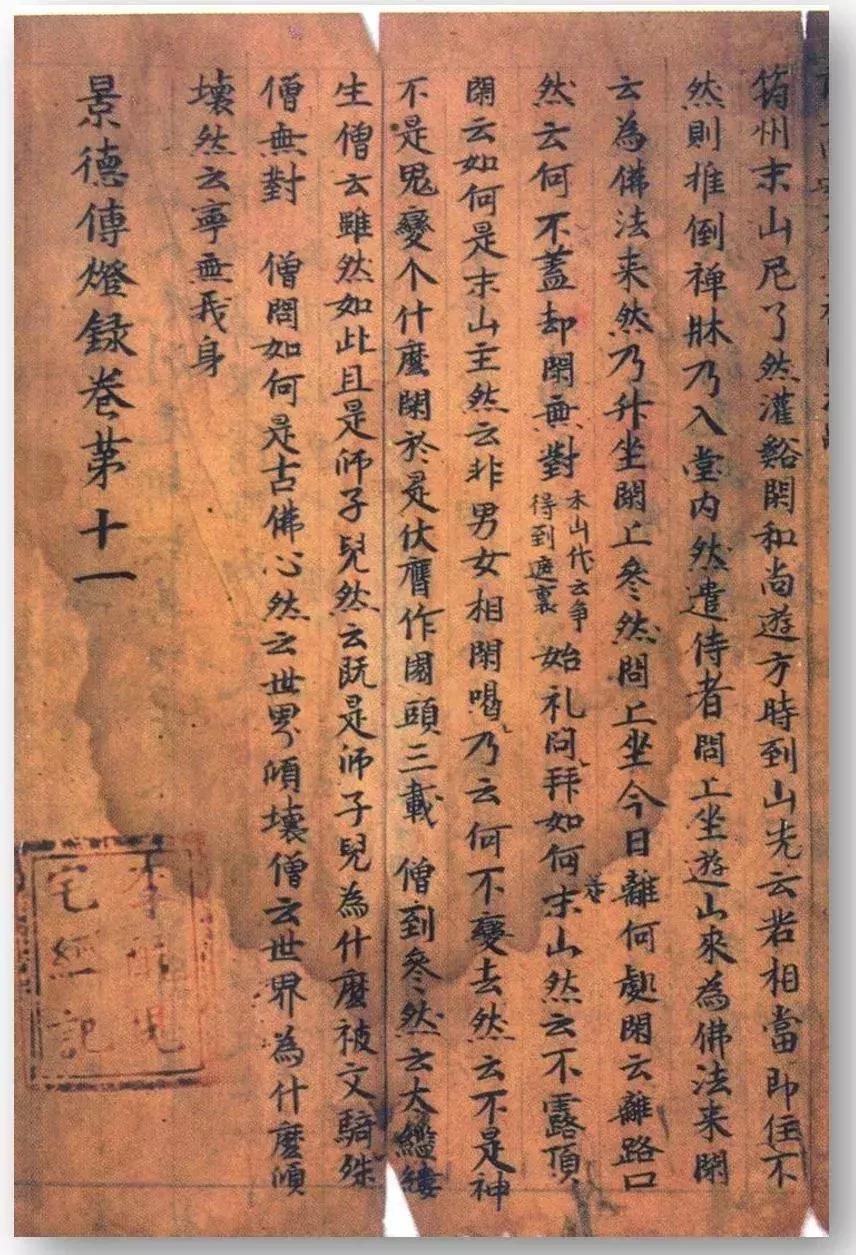 筠州末山尼了然灌谿閑和尚遊方時到山先云若相當即住不
然則推倒禅牀乃入堂内然遣侍者問上坐遊山來為佛法来閑
云為佛法来然乃升坐閑上参然問上坐今日離何處閑云離路口
然云何不蓋却閑無對末山代云争得到遮裏始礼問拜如何是末山然云不露頂
閑云如何是末山主然云非男女相閑喝乃云何不變去然云不是神
不是鬼變个什麼閑於是伏膺作園頭三載 僧到参然云太繿縷
生僧云雖然如此且是师子兒然云既是师子兒為什麼被文
僧無對 僧問如何是古佛心然云世界傾壞僧云世界為什麼傾
壞然云寧無我身
景德傳燈録卷苐十一
李 兒
宅經記